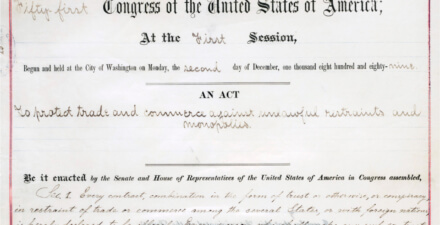 Fifty-first Congress of the United States of America;
At the First Session,
Begun and held at the City of Washington on Monday, the second day of December, one thousand eight hundred and eighty-nine.
AN ACT
To protect trade and commerce against unlawful restraints and
monopolies.
Be it enacted by the Senate and House of Representatives of the United States of America in Congress assembled,
Sec. 1. Every contract, combination in the form of trust or otherwise, or conspiracy,
in restraint of trade or commerce among the several States, or with foreign nations,
is hereby declared to be